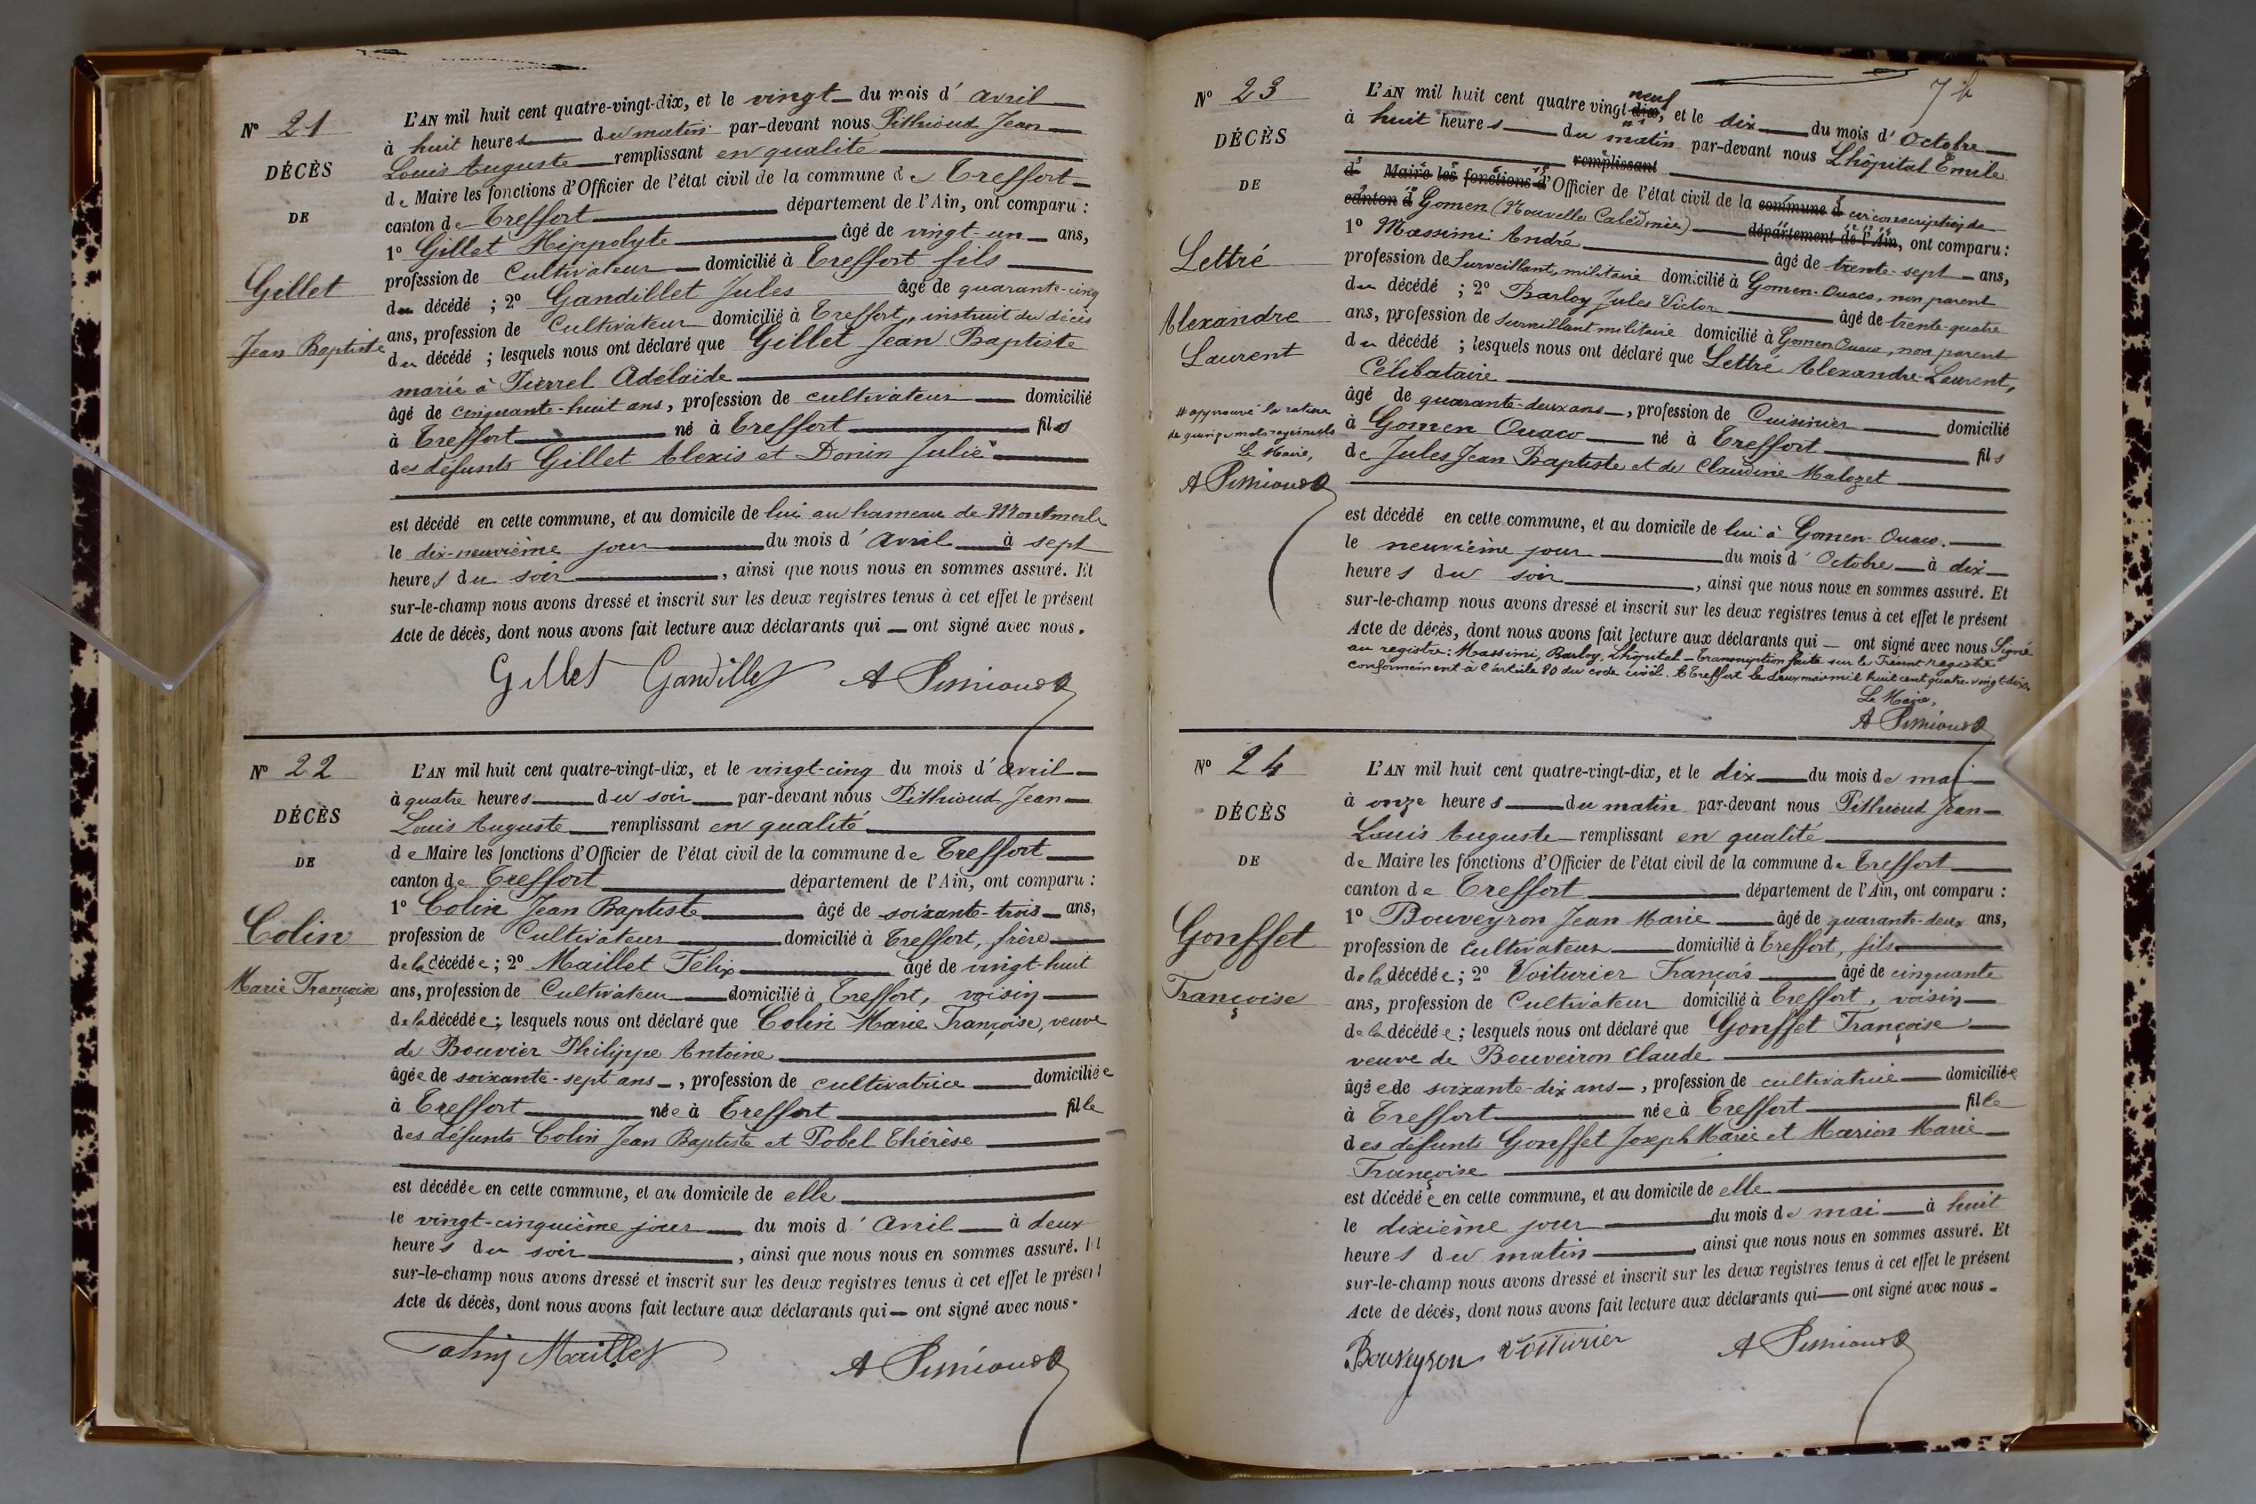 N° 21
DÉCÈS
DE
Gillet
Jean Baptiste
L'AN mil huit cent quatre-vingt-dix, et le vingt du mois d'avril
à huit heures du matin par-devant nous Pithioud Jean
Louis Auguste remplissant en qualité
de Maire les fonctions d'Officier de l'état civil de la commune de Treffort
canton de Treffort département de l'Ain, ont comparu :
1° Gillet Hippolyte âgé de vingt-un ans,
profession de Cultivateur domicilié à Treffort fils
du décédé ; 2° Gandillet Jules âgé de quarante-cinq
ans, profession de Cultivateur domicilié à Treffort, instruit du décès
du décédé ; lesquels nous ont déclaré que Gillet Jean Baptiste
marié à Pierrel Adélaïde
âgé de cinquante-huit ans, profession de cultivateur domicilié
à Treffort né à Treffort fils
des défunts Gillet Alexis et Donin Julie
est décédé en cette commune, et au domicile de lui au hameau de Montmerle
le dix-neuvième jour du mois d'avril à sept
heures du soir, ainsi que nous nous en sommes assuré. Et
sur-le-champ nous avons dressé et inscrit sur les deux registres tenus à cet effet le présent
Acte de décès, dont nous avons fait lecture aux déclarants qui ont signé avec nous.
Gillet Gandillet A Pithioud
N° 22
DÉCÈS
DE
Colin
Marie Françoise
L'AN mil huit cent quatre-vingt-dix, et le vingt-cinq du mois d'avril
à quatre heures du soir par-devant nous Pithioud Jean
Louis Auguste remplissant en qualité
de Maire les fonctions d'Officier de l'état civil de la commune de Treffort
canton de Treffort département de l'Ain, ont comparu :
1° Colin Jean Baptiste âgé de soixante-trois ans,
profession de Cultivateur domicilié à Treffort, frère
de la décédée ; 2° Maillet Félix âgé de vingt-huit
ans, profession de Cultivateur domicilié à Treffort, voisin
de la décédée ; lesquels nous ont déclaré que Colin Marie Françoise, veuve
de Bouvier Philippe Antoine
âgée de soixante-sept ans, profession de cultivatrice domiciliée
à Treffort née à Treffort fille
des défunts Colin Jean Baptiste et Pobel Thérèse
est décédée en cette commune, et au domicile de elle
le vingt-cinquième jour du mois d'avril à deux
heures du soir, ainsi que nous nous en sommes assuré. Et
sur-le-champ nous avons dressé et inscrit sur les deux registres tenus à cet effet le présent
Acte de décès, dont nous avons fait lecture aux déclarants qui ont signé avec nous.
Colin Maillet A Pithioud
N° 23
DÉCÈS
DE
Lettré
Alexandre
Laurent
# approuvé la rature
de quinze mots rayés nuls
Le Maire,
A Pithioud
L'AN mil huit cent quatre vingt-dix, neuf et le dix du mois d'Octobre
à huit heures du matin par-devant nous Lhôpital Emile
remplissant
d Maire les fonctions d'Officier de l'état civil de la commune d circonscription de
canton d Gomen (Nouvelle Calédonie) département de l'Ain, ont comparu :
1° Massimi André âgé de trente-sept ans,
profession de Surveillant militaire domicilié à Gomen-Ouaco, non parent
du décédé ; 2° Barloy Jules Victor âgé de trente-quatre
ans, profession de surveillant militaire domicilié à Gomen Ouaco, non parent
du décédé ; lesquels nous ont déclaré que Lettré Alexandre-Laurent,
Célibataire
âgé de quarante-deux ans, profession de Cuisinier domicilié
à Gomen Ouaco né à Treffort fils
de Jules Jean Baptiste et de Claudine Malozet
est décédé en cette commune, et au domicile de lui à Gomen-Ouaco.
le neuvième jour du mois d'Octobre à dix
heures du soir, ainsi que nous nous en sommes assuré. Et
sur-le-champ nous avons dressé et inscrit sur les deux registres tenus à cet effet le présent
Acte de décès, dont nous avons fait lecture aux déclarants qui ont signé avec nous Signé
au registre : Massimi, Barloy, Lhôpital - Transcription faite sur le présent registre
conformément à l'article 80 du code civil. A Treffort le deux mai mil huit cent quatre-vingt-dix.
Le Maire,
A Pithioud
N° 24
DÉCÈS
DE
Gonffet
Françoise
L'AN mil huit cent quatre-vingt-dix, et le dix du mois de mai
à onze heures du matin par-devant nous Pithioud Jean
Louis Auguste remplissant en qualité
de Maire les fonctions d'Officier de l'état civil de la commune de Treffort
canton de Treffort département de l'Ain, ont comparu :
1° Bouveyron Jean Marie âgé de quarante-deux ans,
profession de Cultivateur domicilié à Treffort, fils
de la décédée ; 2° Voiturier François âgé de cinquante
ans, profession de Cultivateur domicilié à Treffort, voisin
de la décédée ; lesquels nous ont déclaré que Gonffet Françoise
veuve de Bouveiron Claude
âgée de soixante-dix ans, profession de cultivatrice domiciliée
à Treffort née à Treffort fille
des défunts Gonffet Joseph Marie et Marion Marie
Françoise
est décédée en cette commune, et au domicile de elle
le dixième jour du mois de mai à huit
heures du matin, ainsi que nous nous en sommes assuré. Et
sur-le-champ nous avons dressé et inscrit sur les deux registres tenus à cet effet le présent
Acte de décès, dont nous avons fait lecture aux déclarants qui ont signé avec nous.
Bouveyron Voiturier A Pithioud